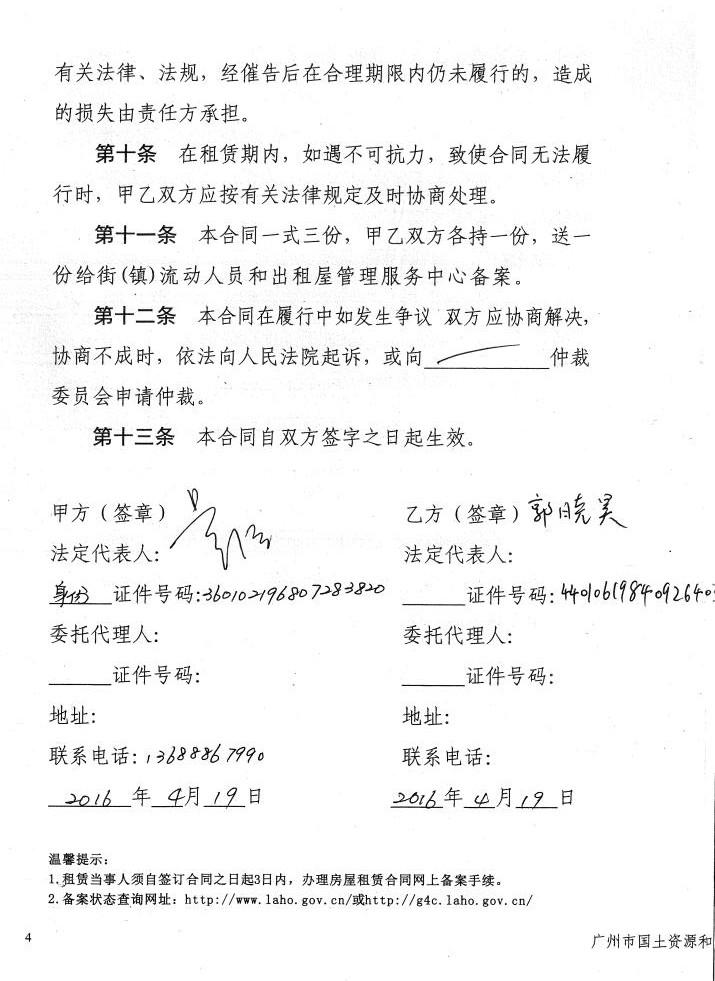 有关法律、法规，经催告后在合理期限内仍未履行的，造成
的损失由责任方承担。
第十条 在租赁期内，如遇不可抗力，致使合同无法履
行时，甲乙双方应按有关法律规定及时协商处理。
第十一条 本合同一式三份，甲乙双方各持一份，送一
份给街(镇)流动人员和出租屋管理服务中心备案。
第十二条 本合同在履行中如发生争议 双方应协商解决，
协商不成时，依法向人民法院起诉，或向______仲裁
委员会申请仲裁。
第十三条 本合同自双方签字之日起生效。
甲方（签章） 乙方（签章）郭晓昊
法定代表人： 法定代表人：
身份 证件号码：360102196807283820 ______证件号码：44010619840926403
委托代理人： 委托代理人：
______证件号码： ______证件号码：
地址： 地址：
联系电话：13688867990 联系电话：
2016 年 4月 19 日 2016 年 4 月 19 日
温馨提示：
1.租赁当事人须自签订合同之日起3日内，办理房屋租赁合同网上备案手续。
2.备案状态查询网址：http://www.laho.gov.cn/或http://g4c.laho.gov.cn/
4 广州市国土资源和